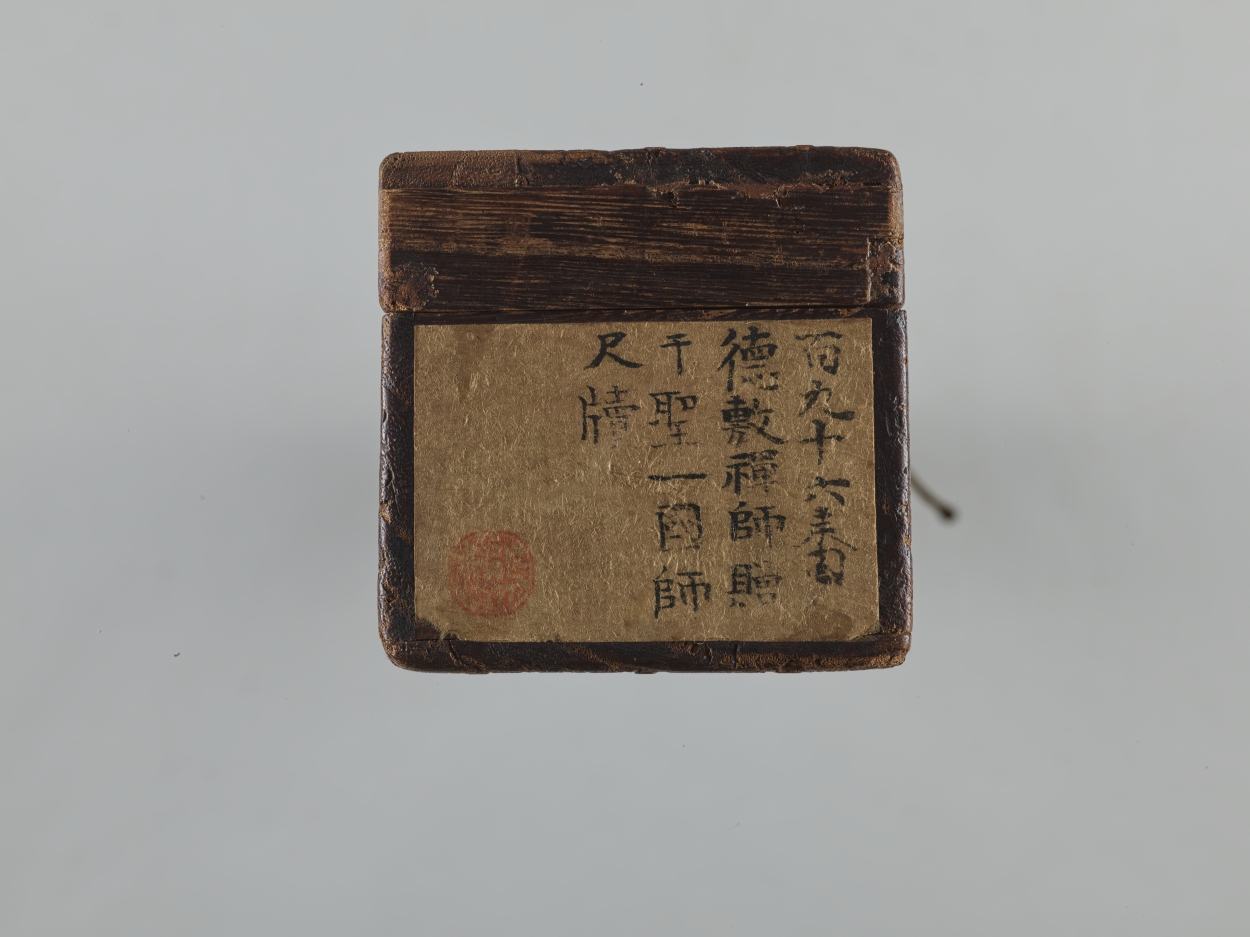 百九十六
德敷禪師贈
于聖一國師
尺牘